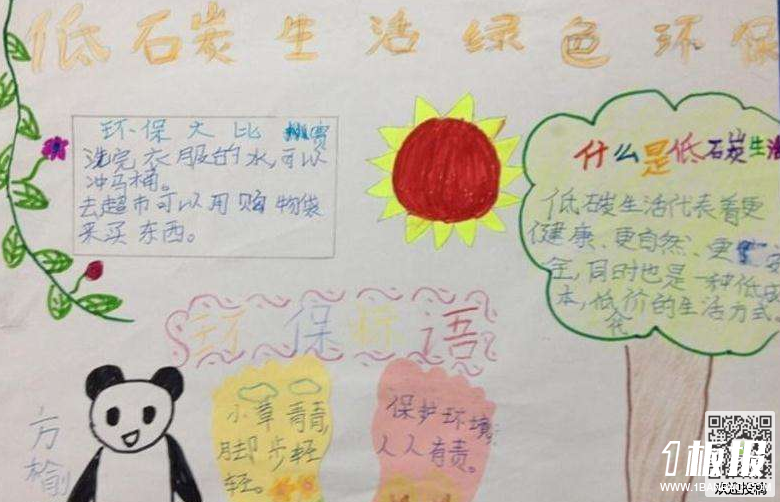 低碳生活绿色环保
环保大比拼
洗完衣服的水,可以
冲马桶。
去超市可以用购物袋
来买东西。
什么是低碳生活
低碳生活代表着更
健康、更自然、更安
全,同时也是一种低成
本,低代价的生活方式。
环保标语
小草青青,
脚步轻
轻。
保护环境,
人人有责。
1板报
WWW.1BANBAO.COM
欢迎扫码